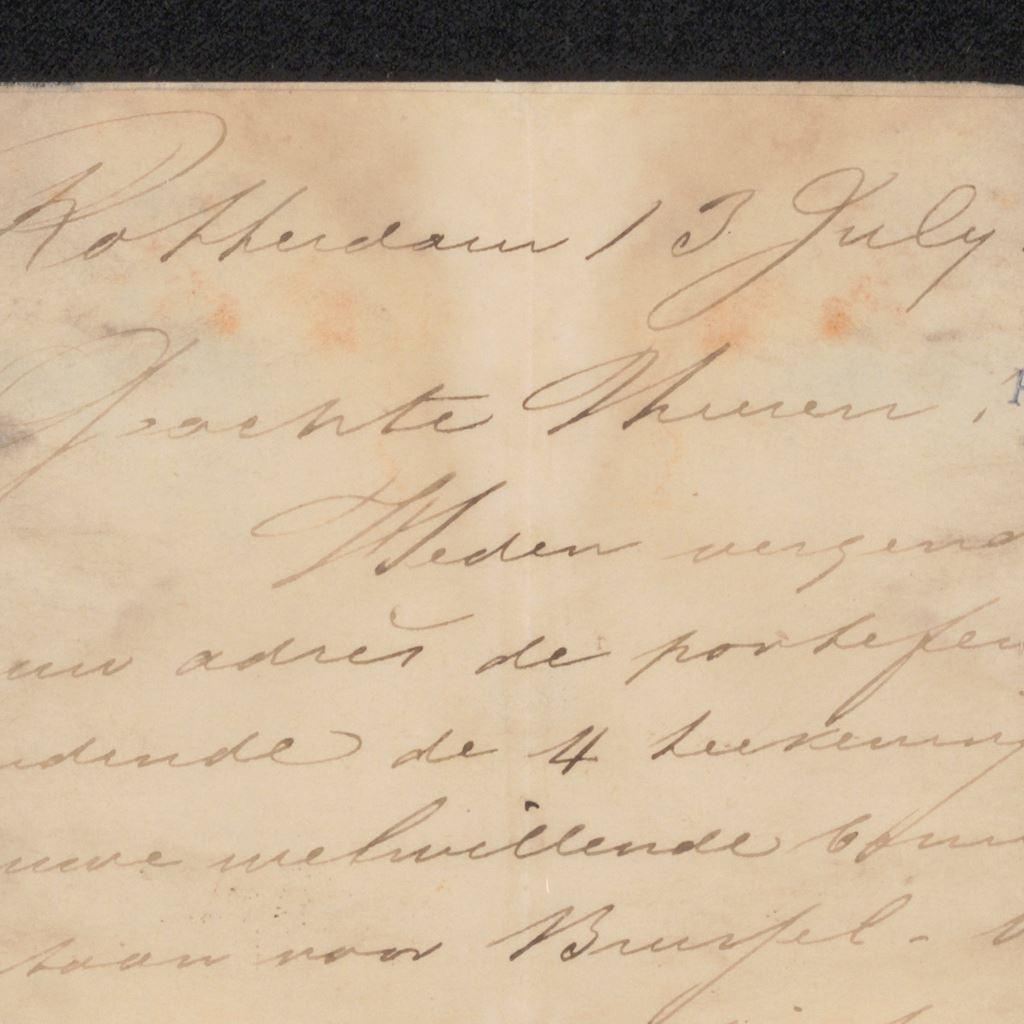 Rotterdam 13 July
Geachte Heeren,
Heden verzend
uw adrès de portefeu
udende de 4 teekening
uwe welwillende
staan voor Brussel -